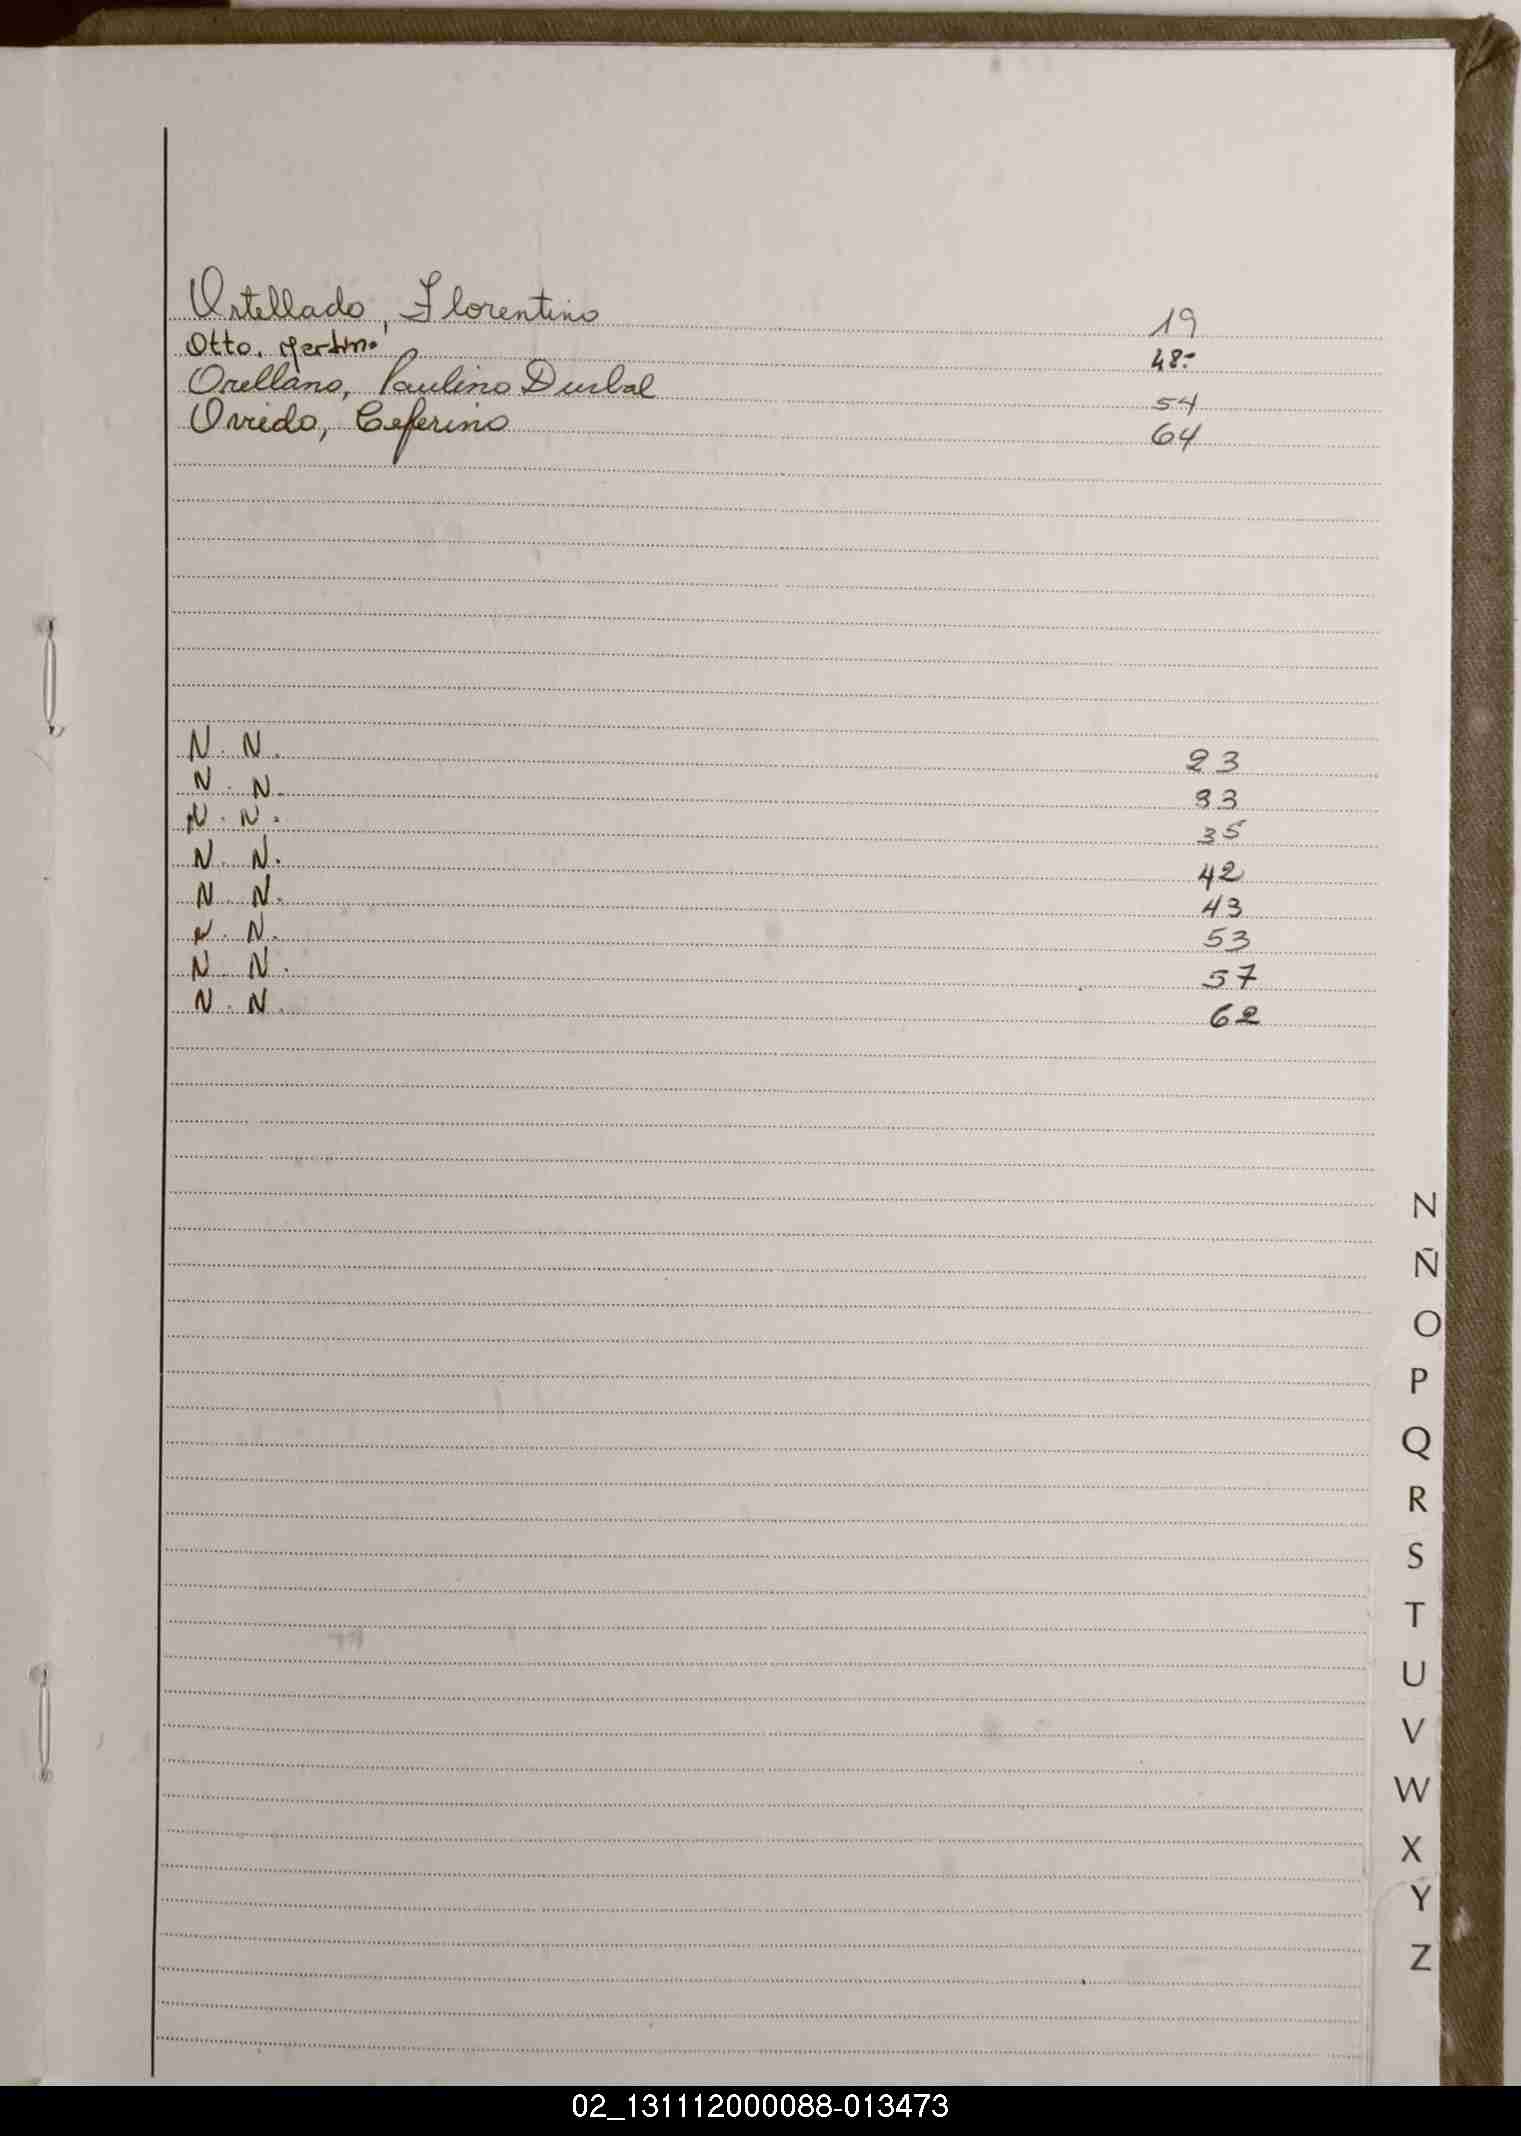 Ortellado, Florentino 19
Otto. Martin. 48.-
Orellano, Paulino Durbal 54
Oviedo, Ceferino 64
N. N. 23
N. N. 33
N. N. 35
N. N. 42
N. N. 43
N. N. 53
N. N. 57
N. N. 62
N
Ñ
O
P
Q
R
S
T
U
V
W
X
Y
Z
02_131112000088-013473